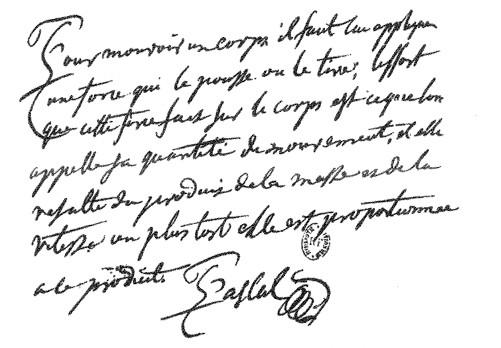 Pour mouvoir un corps il faut luy appliquer
une force qui le pousse ou le tire; l'effort
que cette force fait sur le corps est ce que lon
appelle sa quantité de mouvement, et elle
resulte du produit de la masse et de la
vitesse ou plustost elle est proportionnée
a ce produit.
Pascal